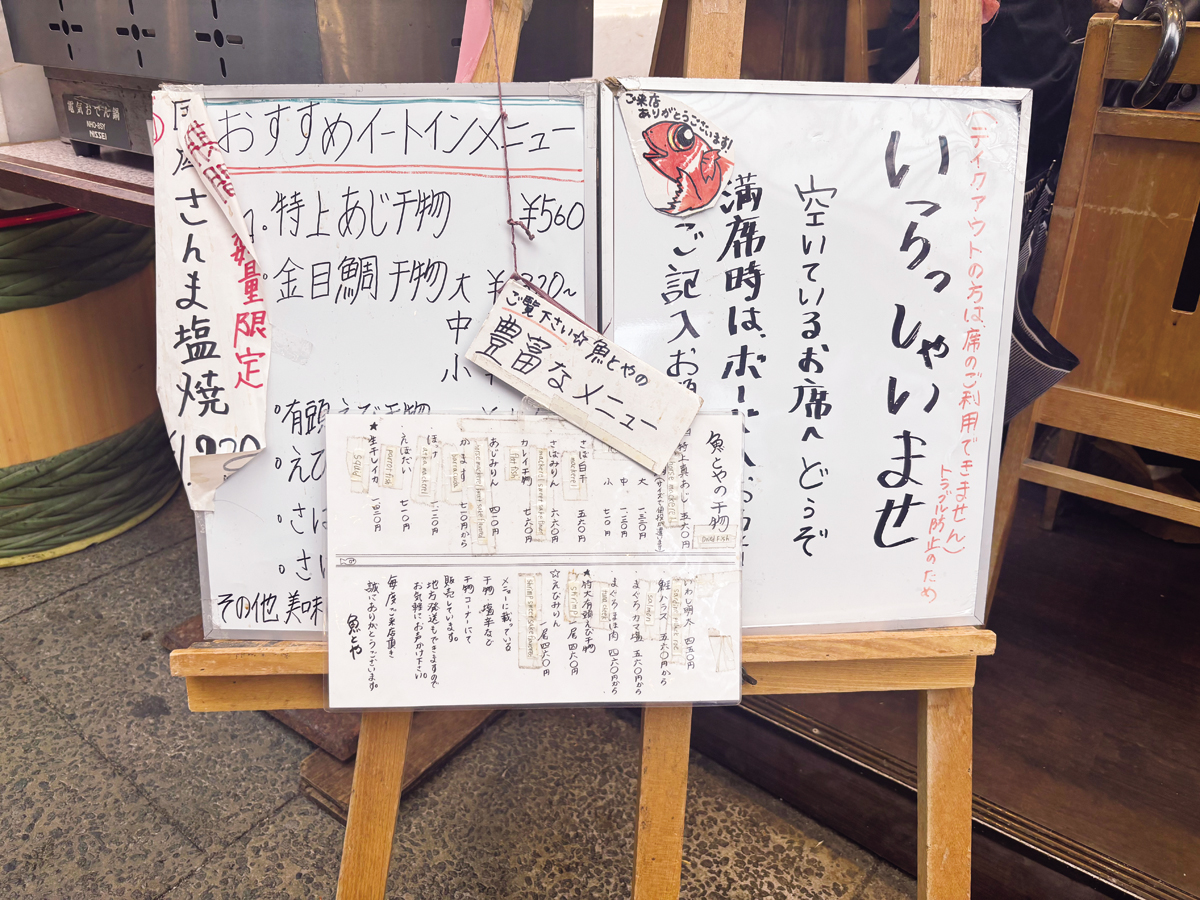 電気おでん鍋
NHO-8SY
NISSEI
さんま塩焼
数量限定
おすすめイートインメニュー
1.特上あじ干物 ¥560
金目鯛干物 大
中
小
有頭えび干物
えび
さば
その他 美味
ご覧下さい☆魚とやの
豊富なメニュー
ご来店
ありがとうございます!
(テイクアウトの方は、席のご利用できません)
トラブル防止のため
いらっしゃいませ
空いているお席へどうぞ
満席時は、ボード
ご記入お
魚とやの干物
特上真あじ 五六〇円
大 一、三二〇円
中 一、一二〇円
小 七一〇円
さば白干 五六〇円
mackerel
さばみりん 六六〇円
カレイ干物 七六〇円
flat fish
あじみりん 四一〇円
かます 七一〇円から
barracuda
ほっけ 一、一二〇円
atka mackerel
えぼだい 七一〇円
parrot fish
★生干しイカ 一、四二〇円
squid
いわし明太 四五〇円
鮭ハラス 五六〇円から
salmon
まぐろカマ塩 五六〇円から
まぐろほほ肉 四六〇円から
★特大有頭えび干物
一尾 四六〇円
shrimp
☆えびみりん
一尾 四六〇円
メニューに載っている
干物、塩辛など
干物コーナーにて
販売しています。
地方発送もできますので
お気軽にお声かけ下さい。
毎度ご来店頂き
誠にありがとうございます。
魚とや